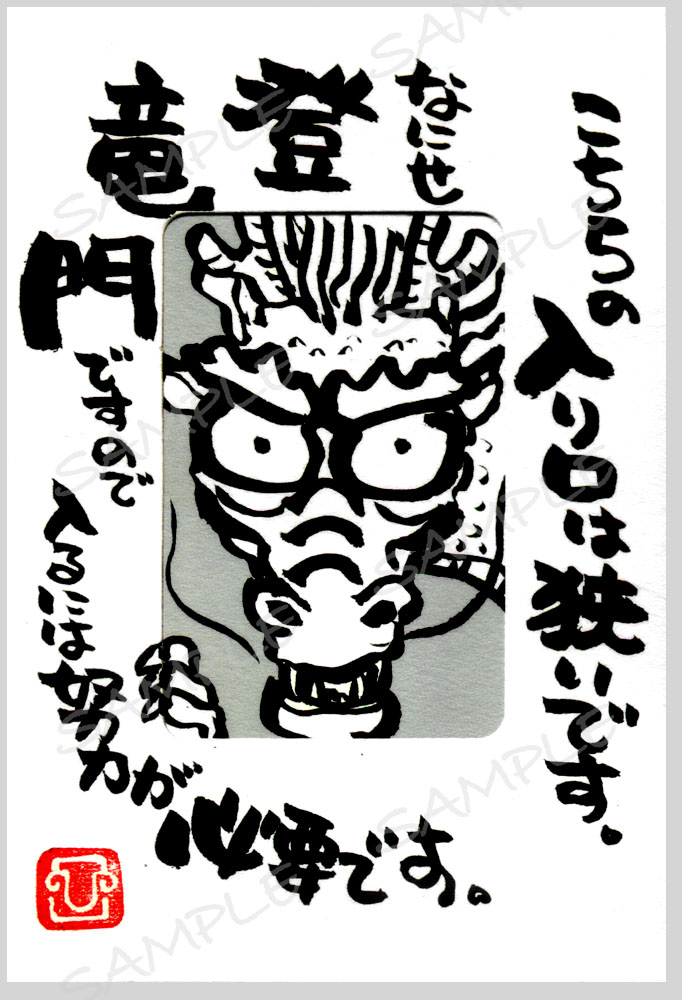 こちらの入り口は狭いです。
なにせ
登竜門ですので
入るには努力が
必要です。
SAMPLE
SAMPLE
SAMPLE
SAMPLE
SAMPLE
SAMPLE
SAMPLE
SAMPLE
SAMPLE
SAMPLE